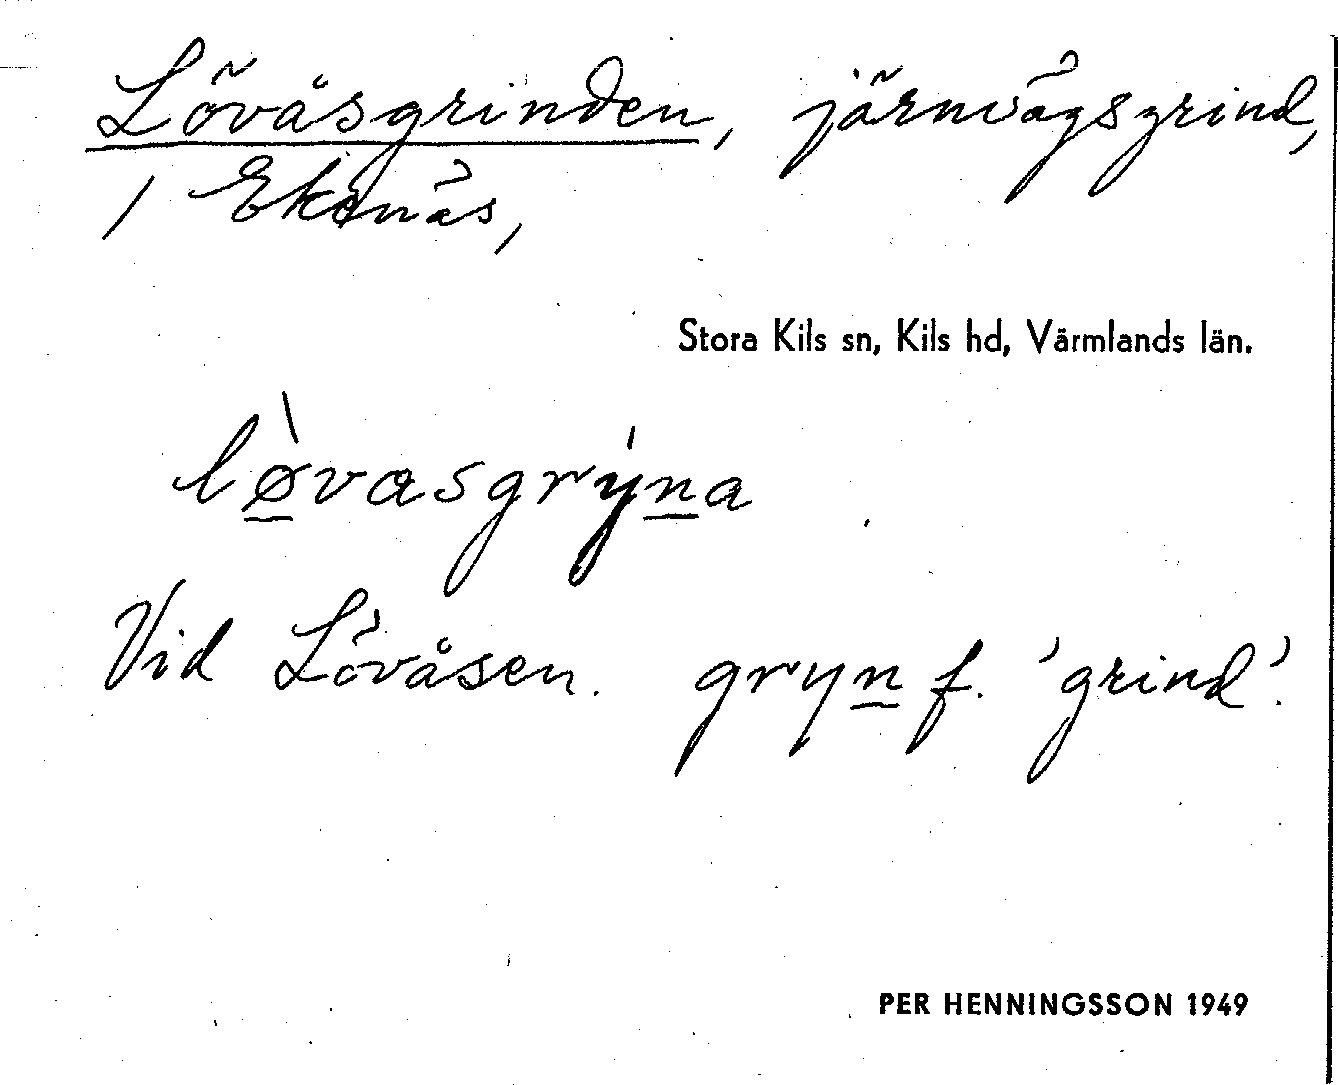 Lövåsgrinden, järnvägsgrind,
/ Ekenäs,
Stora Kils sn, Kils hd, Värmlands län.
lø̱̀vasgrýṉa
Vid Lövåsen. gryṉ f. 'grind'.
PER HENNINGSSON 1949